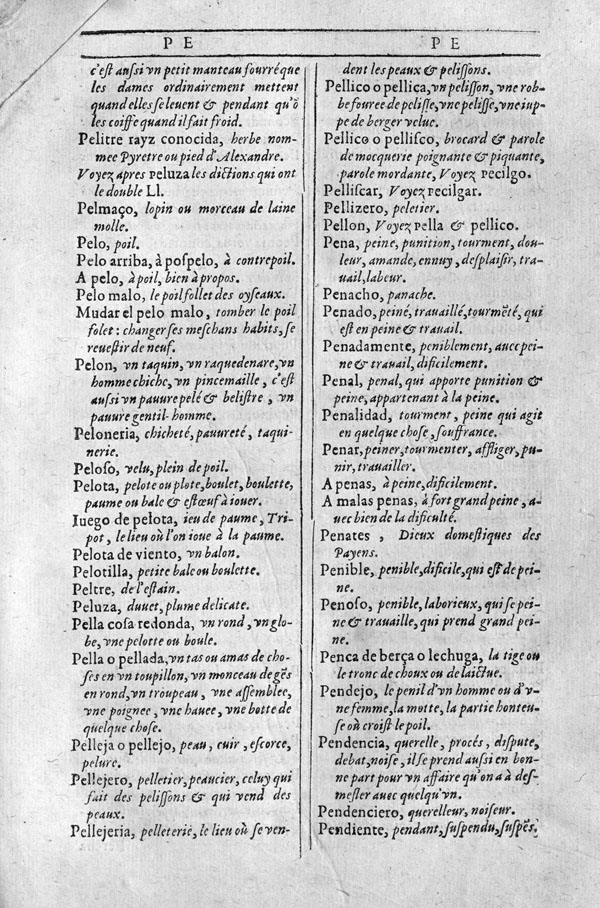 PE
c'est aussi vn petit manteau fourré que
les dames ordinairement mettent
quand elles se leuent & pendant qu'ō
les coiffe quand il fait froid.
Pelitre rayz conocida, herbe nom-
mee Pyretre ou pied d'Alexandre.
Voyez apres Peluza les dictions qui ont
le double Ll.
Pelmaço, lopin ou morceau de laine
molle.
Pelo, poil.
Pelo arriba, à pospelo, à contrepoil.
A pelo, à poil, bien à propos.
Pelo malo, le poil follet des oyseaux.
Mudar el pelo malo, tomber le poil
folet: changer ses meschans habits, se
reuestir de neuf.
Pelon, vn taquin, vn raquedenare, vn
homme chiche, vn pincemaille, c'est
aussi vn pauure pelé & belistre, vn
pauure gentil-homme.
Peloneria, chicheté, pauureté, taqui-
nerie.
Peloso, velu, plein de poil.
Pelota, pelote ou plote, boulet, boulette,
paume ou bale & estœuf à iouer.
Iuego de pelota, ieu de paume, Tri-
pot, le lieu où l'on ioue à la paume.
Pelota de viento, vn balon.
Pelotilla, petite bale ou boulette.
Peltre, de l'estain.
Peluza, duuet, plume delicate.
Pella cosa redonda, vn rond, vn glo-
be, vne pelotte ou boule.
Pella o pellada, vn tas ou amas de cho-
ses en vn toupillon, vn monceau de gēs
en rond, vn troupeau, vne assemblee,
vne poignee, vne hauee, vne botte de
quelque chose.
Pelleja o pellejo, peau, cuir, escorce,
pelure.
Pellejero, pelletier, peaucier, celuy qui
fait des pelissons & qui vend des
peaux.
Pellejeria, pelleterie, le lieu où se ven-
PE
dent les peaux & pelissons.
Pellico o pellica, vn pelisson, vne rob-
be fouree de pelisse, vne pelisse, vne iup-
pe de berger velue.
Pellico o pellisco, brocard & parole
de mocquerie poignante & piquante,
parole mordante, Voyez Pecilgo.
Pelliscar, Voyez Pecilgar.
Pellizero, peletier.
Pellon, Voyez Pella & pellico.
Pena, peine, punition, tourment, dou-
leur, amande, ennuy, desplaisir, tra-
uail, labeur.
Penacho, panache.
Penado, peiné, trauaillé, tourmēté, qui
est en peine & trauail.
Penadamente, peniblement, auec pei-
ne & trauail, dificilement.
Penal, penal, qui apporte punition &
peine, appartenant à la peine.
Penalidad, tourment, peine qui agit
en quelque chose, souffrance.
Penar, peiner, tourmenter, affliger, pu-
nir, trauailler.
A penas, à peine, dificilement.
A malas penas, à fort grand peine, a-
uec bien de la dificulté.
Penates, Dieux domestiques des
Payens.
Penible, penible, dificile, qui est de pei-
ne.
Penoso, penible, laborieux, qui se pei-
ne & trauaille, qui prend grand pei-
ne.
Penca de berça o lechuga, la tige ou
le tronc de choux ou de laictue.
Pendejo, le penil d'vn homme ou d'v-
ne femme, la motte, la partie honteu-
se où croist le poil.
Pendencia, querelle, procés, dispute,
debat, noise, il se prend aussi en bon-
ne part pour vn affaire qu'on a à des-
mesler auec quelqu'vn.
Pendenciero, querelleur, noiseur.
Pendiente, pendant, suspendu, suspēs.